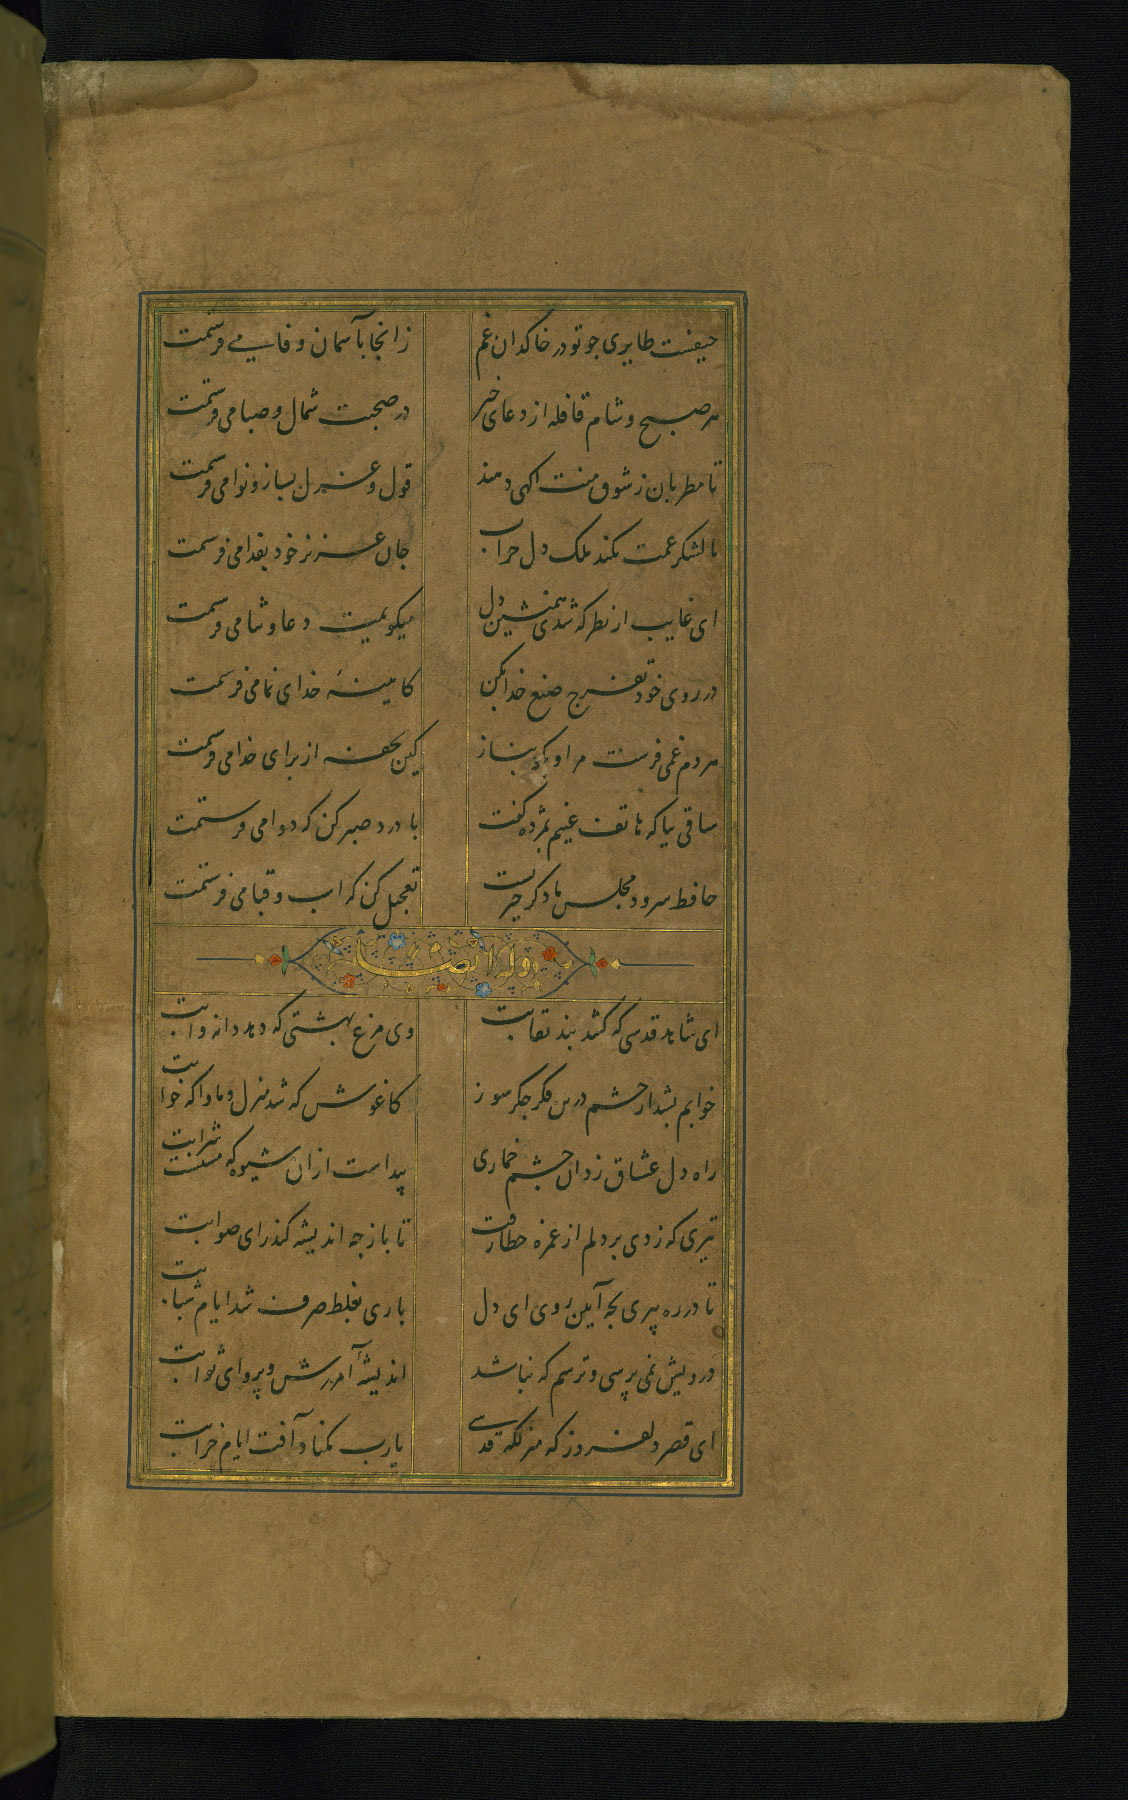 حیفست طایری چو تو در خاکدان غم زانجا بآسمان وفا می فرستمت
هر صبح و شام قافله از دعای خیر در صحبت شمال و صبا می فرستمت
تا مطربان ز شوق منت اکهی دهند قول و غزل بساز و نوا می فرستمت
تا لشکر غمت نکند ملک دل خراب جان عزیز خود بفدا می فرستمت
ای غایب از نظر که شدی همنشین دل میکویمت دعا و ثنا می فرستمت
در روی خود تفرج صنع خدا بکن کاینهٔ خدای نما می فرستمت
هر دم غمی فرست مرا و بکو بناز کین تحفه از برای خدا می فرستمت
ساقی بیا که هاتف غیبم بمژده کفت با درد صبر کن که دوا می فرستمت
حافظ سرود مجلس ما ذکر خیر تست تعجیل کن که اسب و قبا می فرستمت
وله ایضا
ای شاهد قدسی که کشد بند نقابت وی مرغ بهشتی که دهد دانه و ابت
خوابم بشد از چشم درین فکر جکر سوز کاغوش که شد منزل و ماواکه خوابت
راه دل عشاق زد آن چشم خماری پیداست ازان شیوه که مستست شرابت
تیری که زدی بر دلم از غمزه خطا رفت تا باز چه اندیشه کند رای صوابت
تا در ره پیری بچه آیین روی ای دل باری بغلط صرف شد ایام شبابت
درویش نمی پرسی و ترسم که نباشد اندیشهٔ آمرزش و پروای ثوابت
ای قصر دلفروز که منزلکه قدسی یارب مکناد آفت ایام خرابت